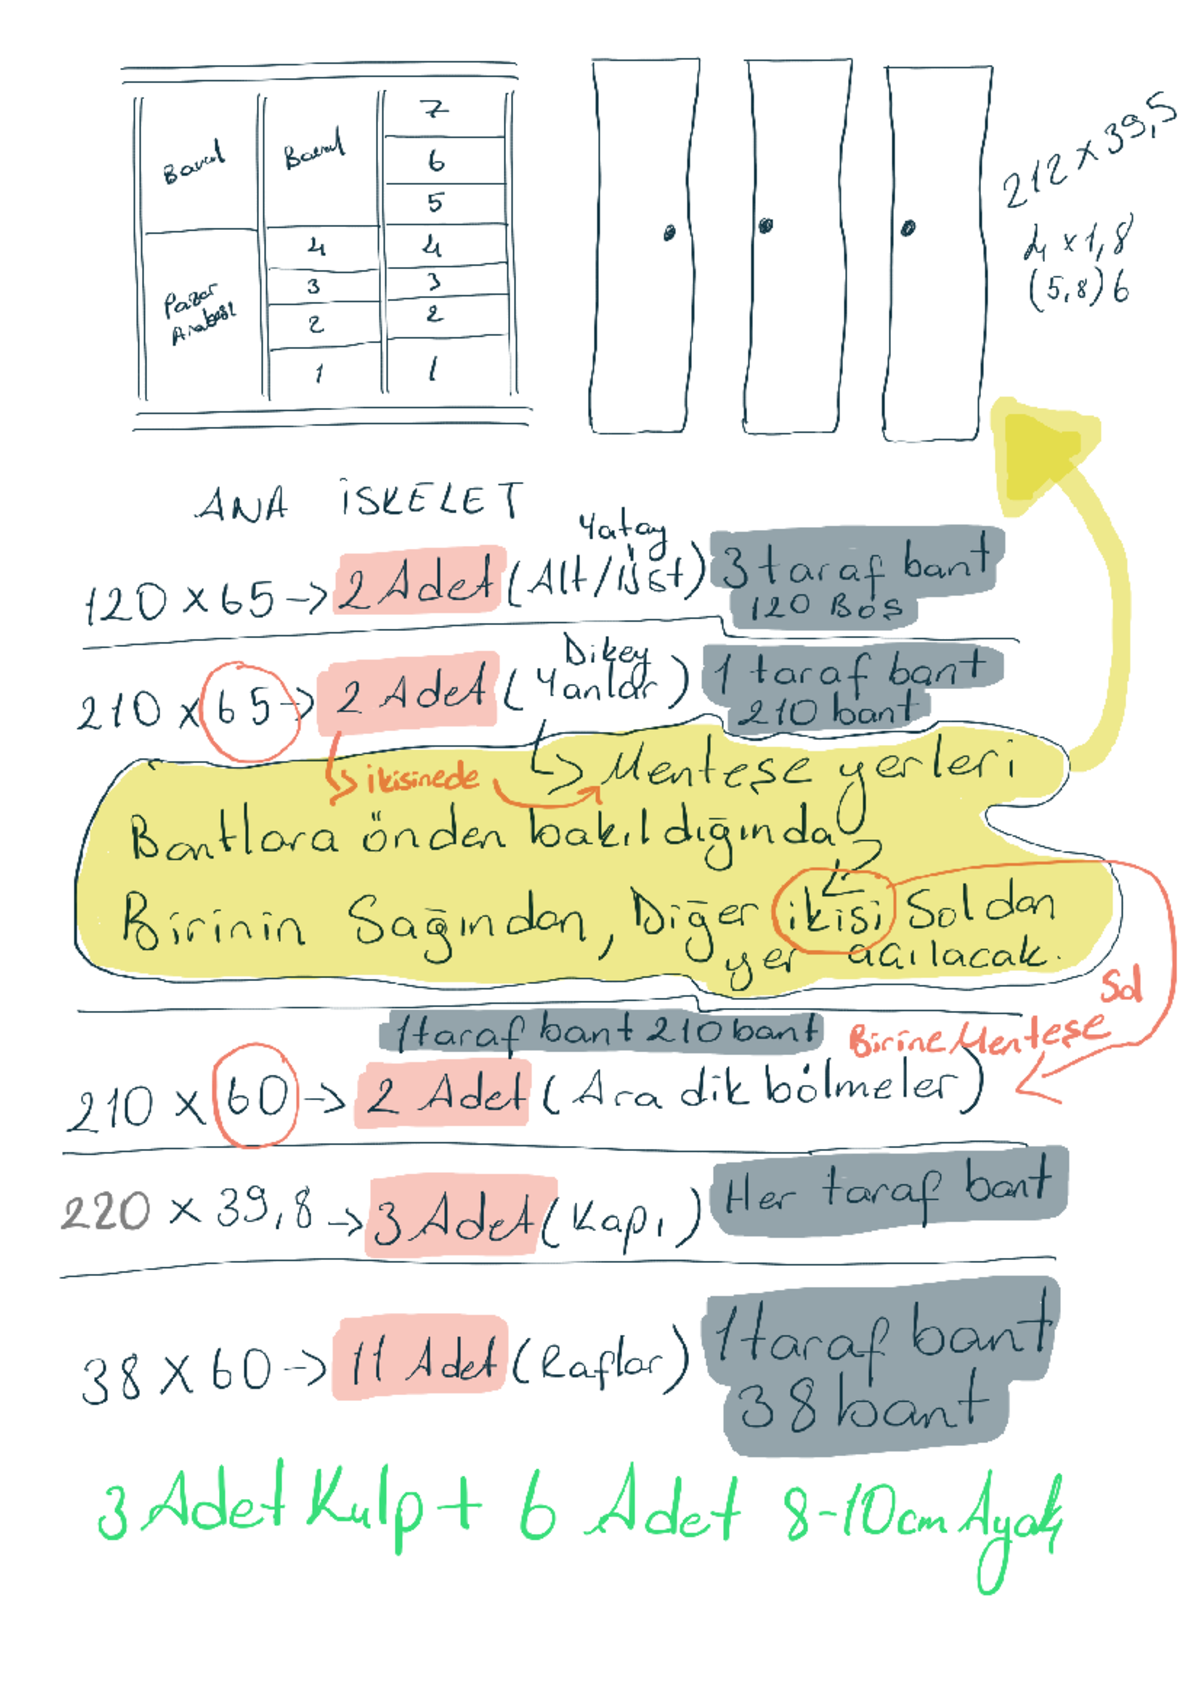 Bavul
Bavul
7
6
5
4
3
2
1
Pazar
Arabası
4
3
2
1
212 x 39,5
4 x 1,8
(5,8) 6
ANA İSKELET
120 x 65 -> 2 Adet (Alt/Üst) Yatay 3 taraf bant
120 Boş
210 x 65 -> 2 Adet (Dikey Yanlar) 1 taraf bant
210 bant
ikisinede
Menteşe yerleri
Bantlara önden bakıldığında
Birinin Sağından, Diğer ikisi Soldan
yer açılacak.
Sol
Birine Menteşe
1 taraf bant 210 bant
210 x 60 -> 2 Adet (Ara dik bölmeler)
220 x 39,8 -> 3 Adet (Kapı) Her taraf bant
38 x 60 -> 11 Adet (Raflar) 1 taraf bant
38 bant
3 Adet Kulp + 6 Adet 8-10cm Ayak